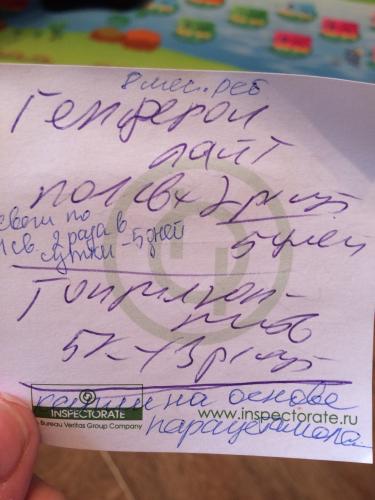 8 мес. реб
Генферон
лайт
по 1 св х 2 р/сут
5 дней
свечи по
1 св. 2 раза в
сутки - 5 дней
5к - 3 р/сут
капли на основе
парацетамола
INSPECTORATE
Bureau Veritas Group Company
www.inspectorate.ru